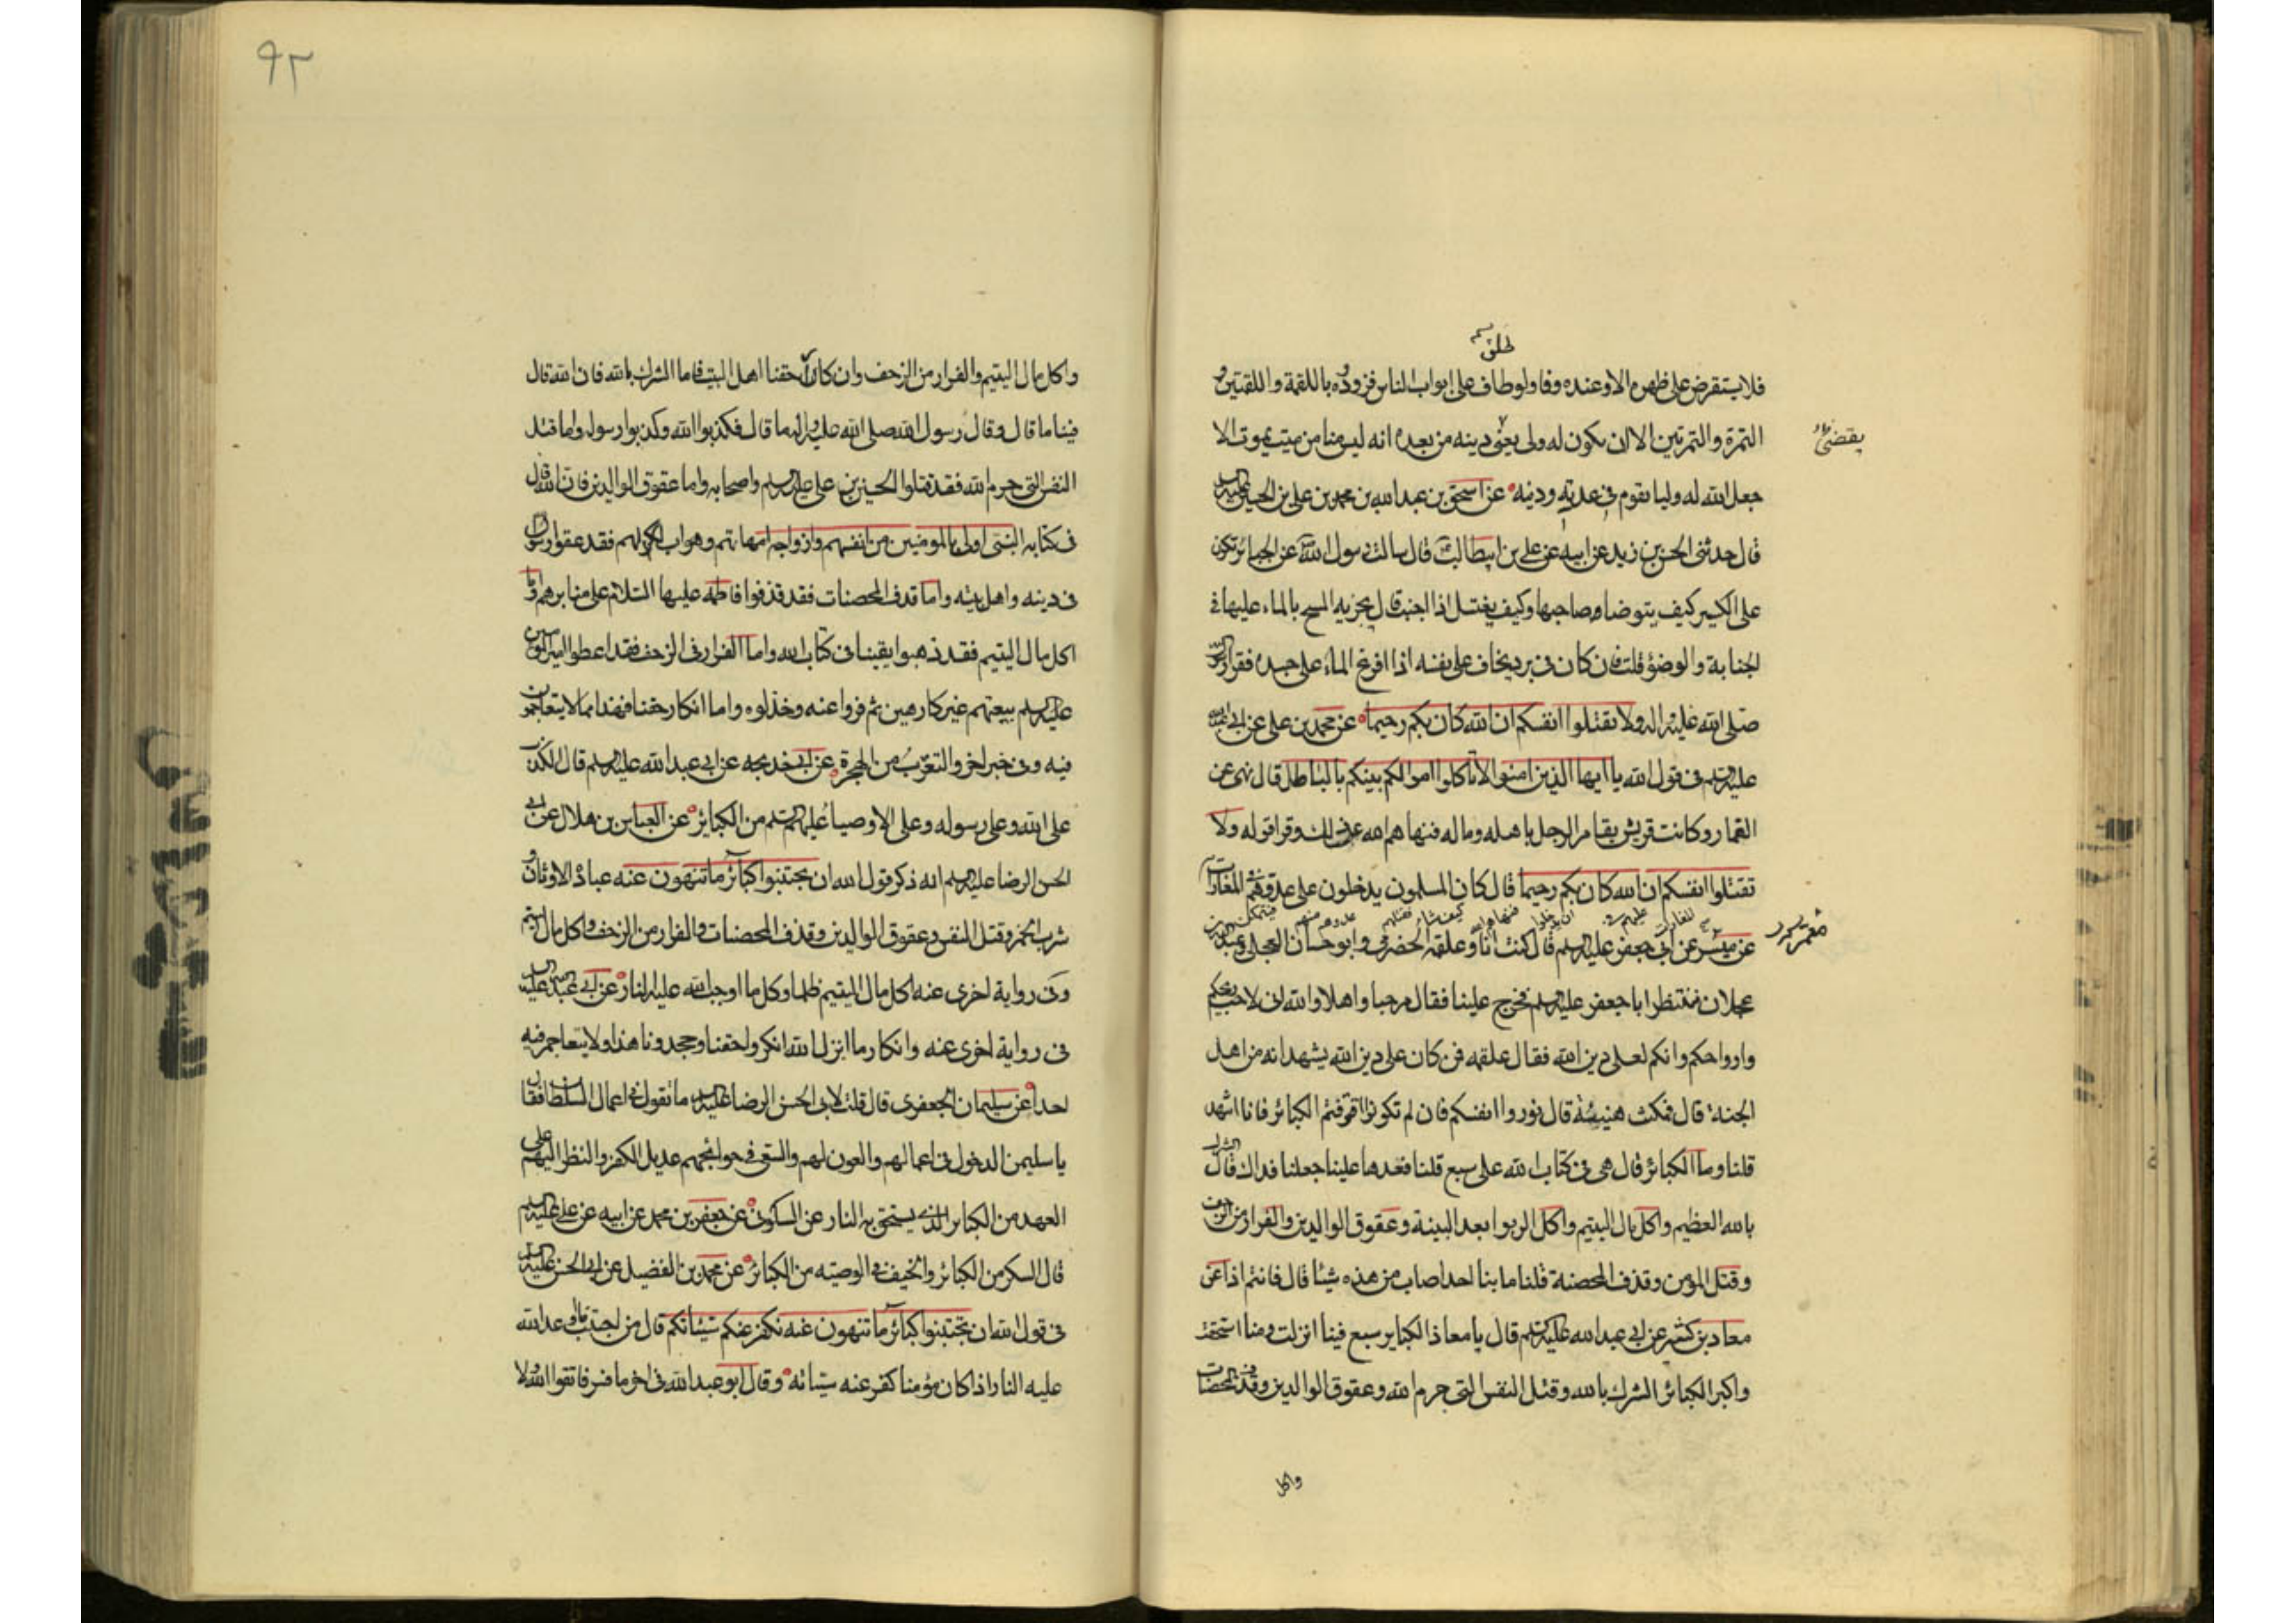 طلق
فلا يستقرض على ظهره الا وعنده وفا ولو طاف على ابواب الناس فزودوه باللقمة واللقمتين و
التمرة والتمرتين الا ان يكون له ولى يقضى دينه من بعده انه ليس منا من ميت يموت الا
يقضى
جعل الله له وليا يقوم فى عدته ودينه عن اسحق بن عبد الله بن محمد بن على بن الحسين عليه السلم
قال حدثنى الحسن بن زيد عن ابيه عن على بن ابيطالب قال سالت رسول الله عن الجبائر تكون
على الكسير كيف يتوضا صاحبها وكيف يغتسل اذا اجنب قال يجزيه المسح بالماء عليها فى
الجنابة والوضوء قلت فان كان فى برد يخاف على نفسه اذا افرغ الماء على جسده فقرا رسول الله
صلى الله عليه واله ولا تقتلوا انفسكم ان الله كان بكم رحيما عن محمد بن على عن ابى عبد الله
عليه السلم فى قول الله يا ايها الذين امنوا لا تاكلوا اموالكم بينكم بالباطل قال نهى عن
القمار وكانت قريش يقامر الرجل باهله وماله فنهاهم الله عن ذلك وقرا قوله ولا
تقتلوا انفسكم ان الله كان بكم رحيما قال كان المسلمون يدخلون على عدوهم المغارات
عن ميسر عن ابى جعفر عليه السلم قال كنت انا وعلقمه الحضرمى وابو حسان العجلى وعبد الله بن
عجلان ننتظر ابا جعفر عليه السلم فخرج علينا فقال مرحبا واهلا والله انى لاحب ريحكم
وارواحكم وانكم لعلى دين الله فقال علقمه فمن كان على دين الله يشهد انه من اهل
الجنة قال فمكث هنيئة قال نوروا انفسكم فان لم تكونوا اقترفتم الكبائر فانا اشهد
قلنا وما الكبائر قال هى فى كتاب الله على سبع قلنا فعدها علينا جعلنا فداك قال الشرك
بالله العظيم واكل مال اليتيم واكل الربوا بعد البينة وعقوق الوالدين والفرار من الزحف
وقتل المؤمن وقذف المحصنة قلنا ما بنا احد اصاب من هذه شيئا قال فانتم اذا عن
معاذ بن كثير عن ابى عبد الله عليه السلم قال يا معاذ الكباير سبع فينا انزلت ومنا استحقت
واكبر الكبائر الشرك بالله وقتل النفس التى حرم الله وعقوق الوالدين وقذف المحصنات
واكل
٩٢
واكل مال اليتيم والفرار من الزحف وانكار حقنا اهل البيت فاما الشرك بالله فان الله قال
فينا ما قال وقال رسول الله صلى الله عليه واله ما قال فكذبوا الله وكذبوا رسوله واما قتل
النفس التى حرم الله فقد قتلوا الحسين بن على عليه السلم واصحابه واما عقوق الوالدين فان الله قال
فى كتابه النبى اولى بالمومنين من انفسهم وازواجه امهاتهم وهو اب لهم فقد عقوا رسول
فى دينه واهل بيته واما قذف المحصنات فقد قذفوا فاطمه عليها السلام على منابرهم واما
اكل مال اليتيم فقد ذهبوا بفيئنا فى كتاب الله واما الفرار فى الزحف فقد اعطوا امير المؤمنين
عليه السلم بيعتهم غير كارهين ثم فروا عنه وخذلوه واما انكار حقنا فهذا مما لا يتعاجمون
فيه وفى خبر اخر والتعرب من الهجرة عن ابى خديجه عن ابى عبد الله عليه السلم قال الكذب
على الله وعلى رسوله وعلى الاوصياء عليهم السلم من الكبائر عن العباس بن هلال عن ابى
الحسن الرضا عليه السلم انه ذكر قول الله ان تجتنبوا كبائر ما تنهون عنه عبادة الاوثان و
شرب الخمر وقتل النفس وعقوق الوالدين وقذف المحصنات والفرار من الزحف واكل مال اليتيم
وفى رواية اخرى عنه اكل مال اليتيم ظلما وكل ما اوجب الله عليه النار عن ابى عبد الله عليه السلم
فى رواية اخرى عنه وانكار ما انزل الله انكروا حقنا وجحدونا هذا ولا يتعاجم فيه
احد عن سليمان الجعفرى قال قلت لابى الحسن الرضا عليه السلم ما تقول فى اعمال السلطان فقال
يا سليمن الدخول فى اعمالهم والعون لهم والسعى فى حوائجهم عديل الكفر والنظر اليهم على
العهد من الكبائر الذى يستحق به النار عن السكونى عن جعفر بن محمد عن ابيه عن على عليه السلم
قال السكر من الكبائر والحيف فى الوصيه من الكبائر عن محمد بن الفضيل عن ابى الحسن عليه السلم
فى قول الله ان تجتنبوا كبائر ما تنهون عنه نكفر عنكم سيئاتكم قال من اجتنب ما وعد الله
عليه النار اذا كان مؤمنا كفر عنه سيئاته وقال ابو عبد الله فى اخر ما فسر فاتقوا الله ولا